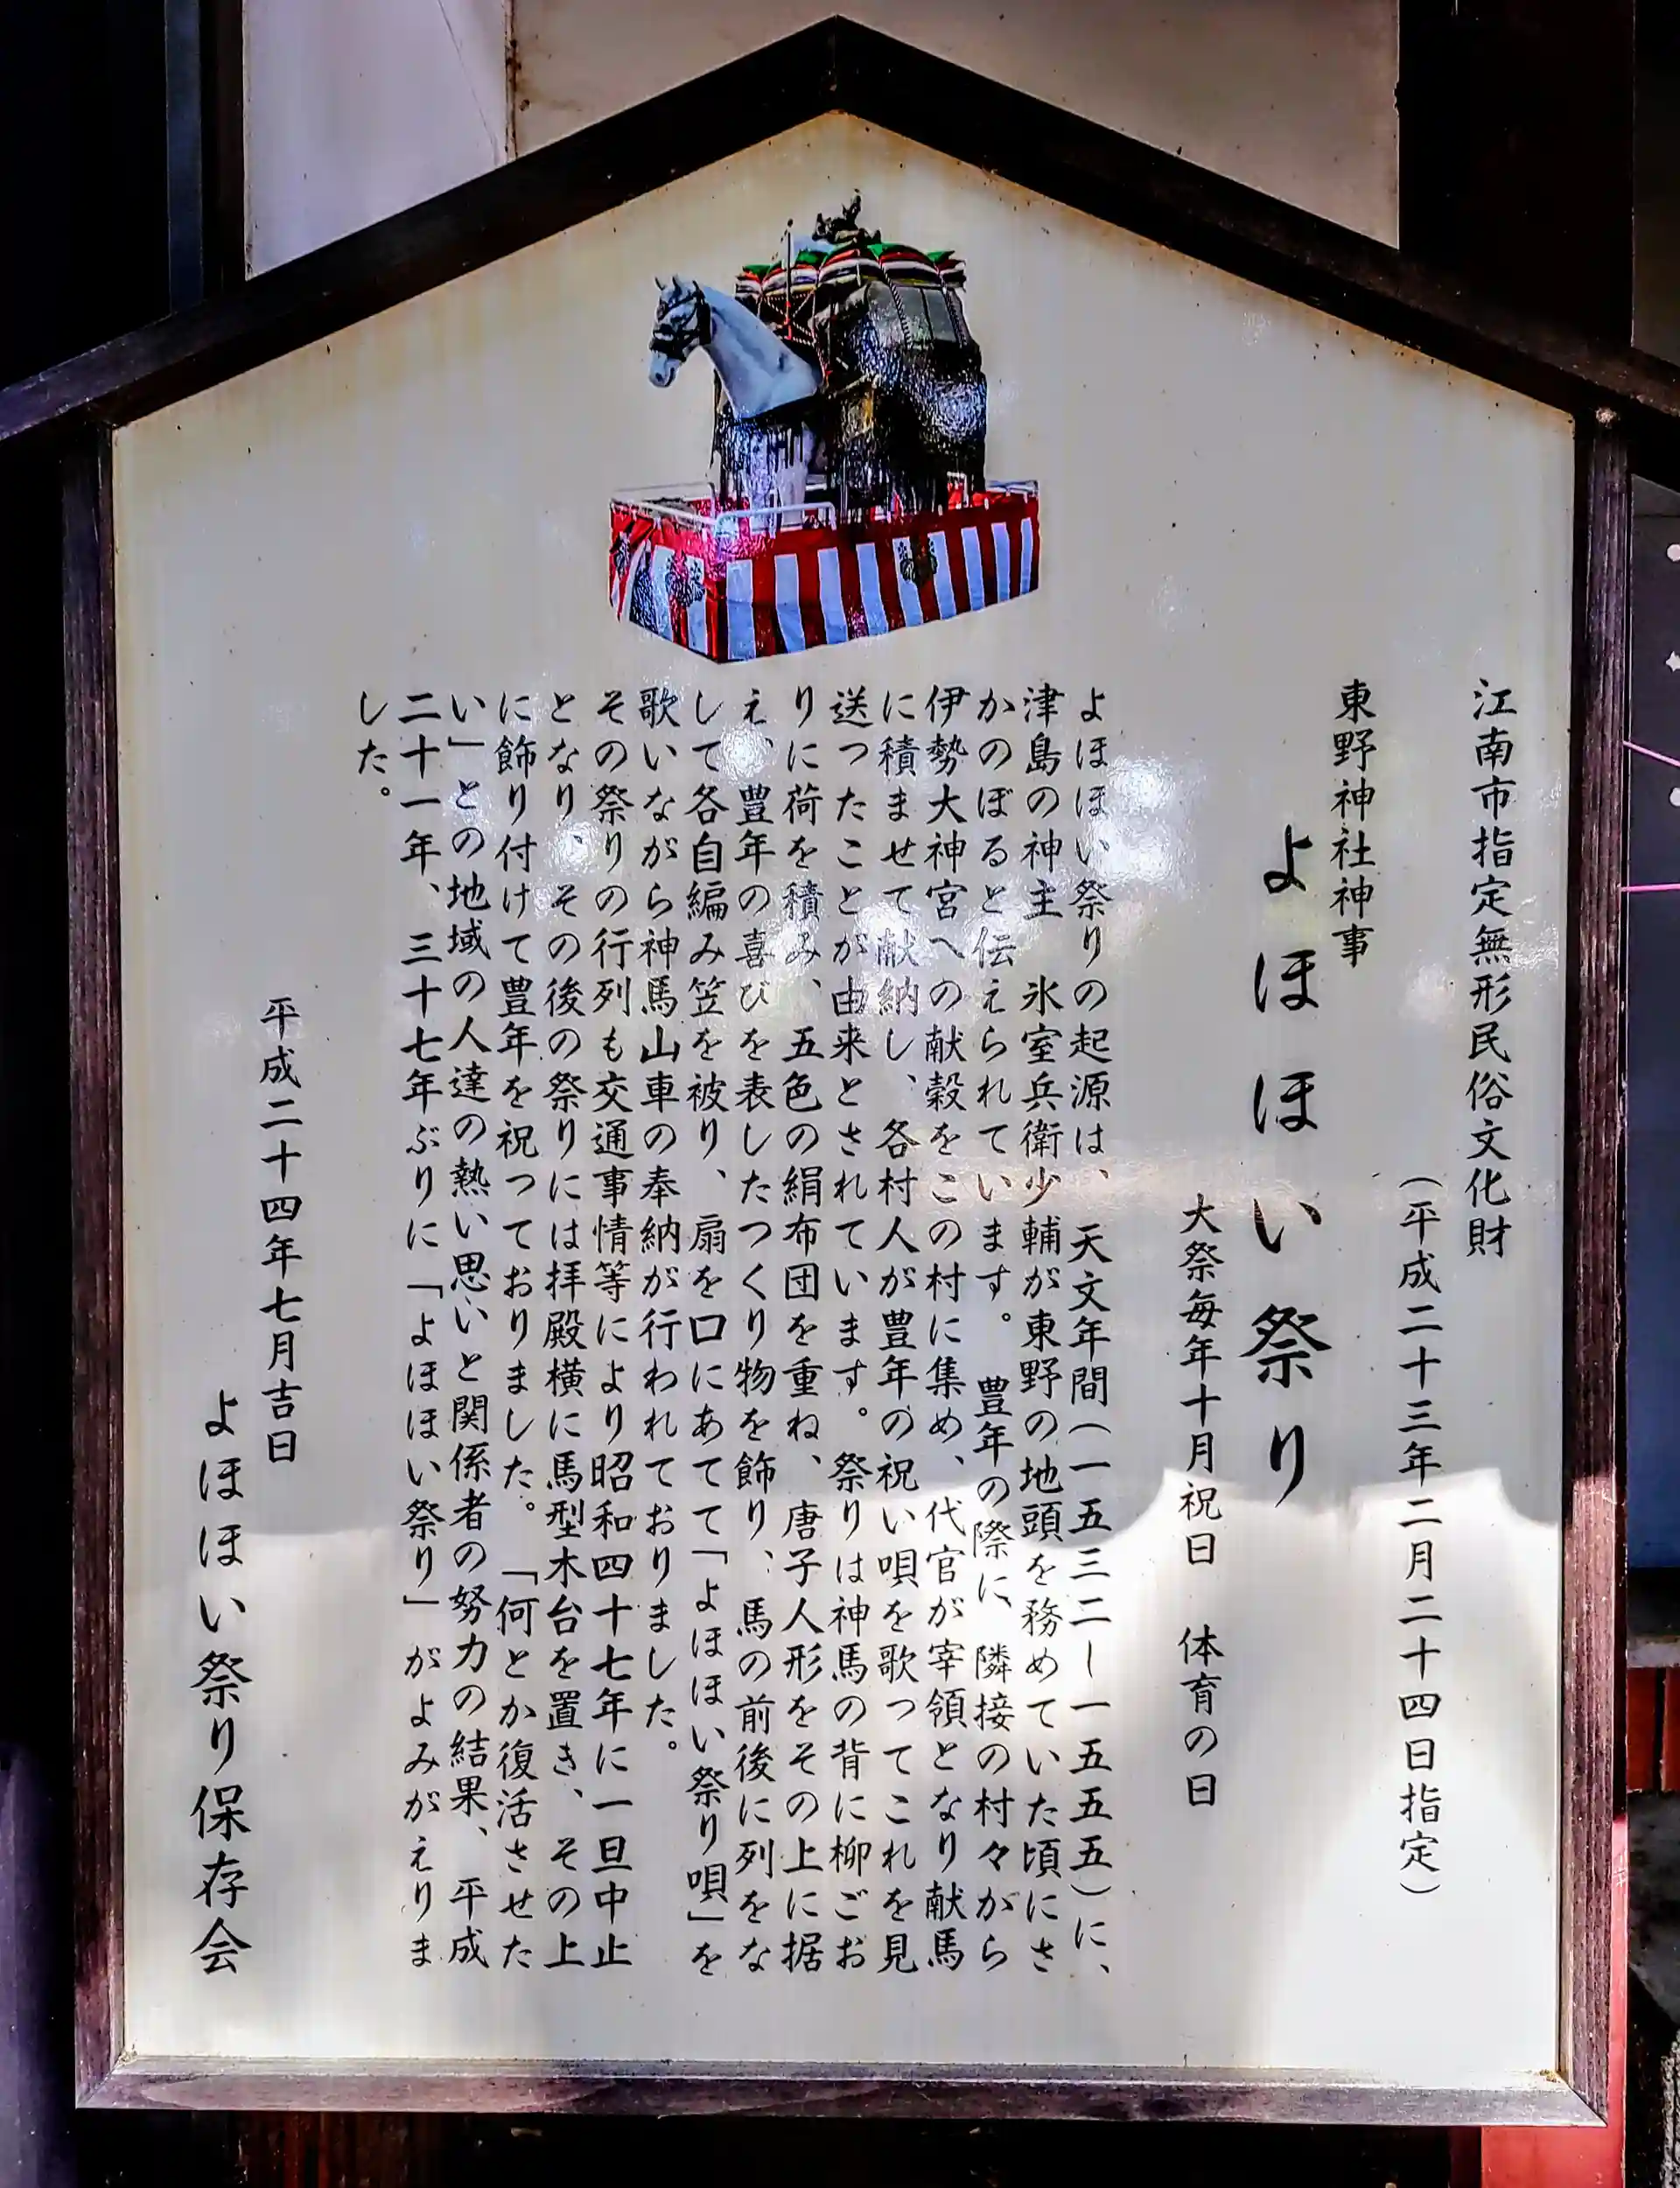 江南市指定無形民俗文化財
(平成二十三年二月二十四日指定)
東野神社神事
よほほい祭り
大祭毎年十月祝日 体育の日
よほほい祭りの起源は、天文年間(一五三二ー一五五五)に、
津島の神主 氷室兵衛少輔が東野の地頭を務めていた頃にさ
かのぼると伝えられています。豊年の際に 隣接の村々がら
伊勢大神宮への献穀をこの村に集め、代官が宰領となり献馬
に積ませて献納し、各村人が豊年の祝い唄を歌ってこれを見
送ったことが由来とされています。祭りは神馬の背に柳ごお
りに荷を積み、五色の絹布団を重ね、唐子人形をその上に据
え、豊年の喜びを表したつくり物を飾り、馬の前後に列をな
して各自編み笠を被り、扇を口にあてて「よほほい祭り唄」を
歌いながら神馬山車の奉納が行われておりました。
その祭りの行列も交通事情等により昭和四十七年に一旦中止
となり、その後の祭りには拝殿横に馬型木台を置き、その上
に飾り付けて豊年を祝っておりました。「何とか復活させた
い」との地域の人達の熱い思いと関係者の努力の結果、平成
二十一年、三十七年ぶりに「よほほい祭り」がよみがえりま
した。
平成二十四年七月吉日
よほほい祭り保存会